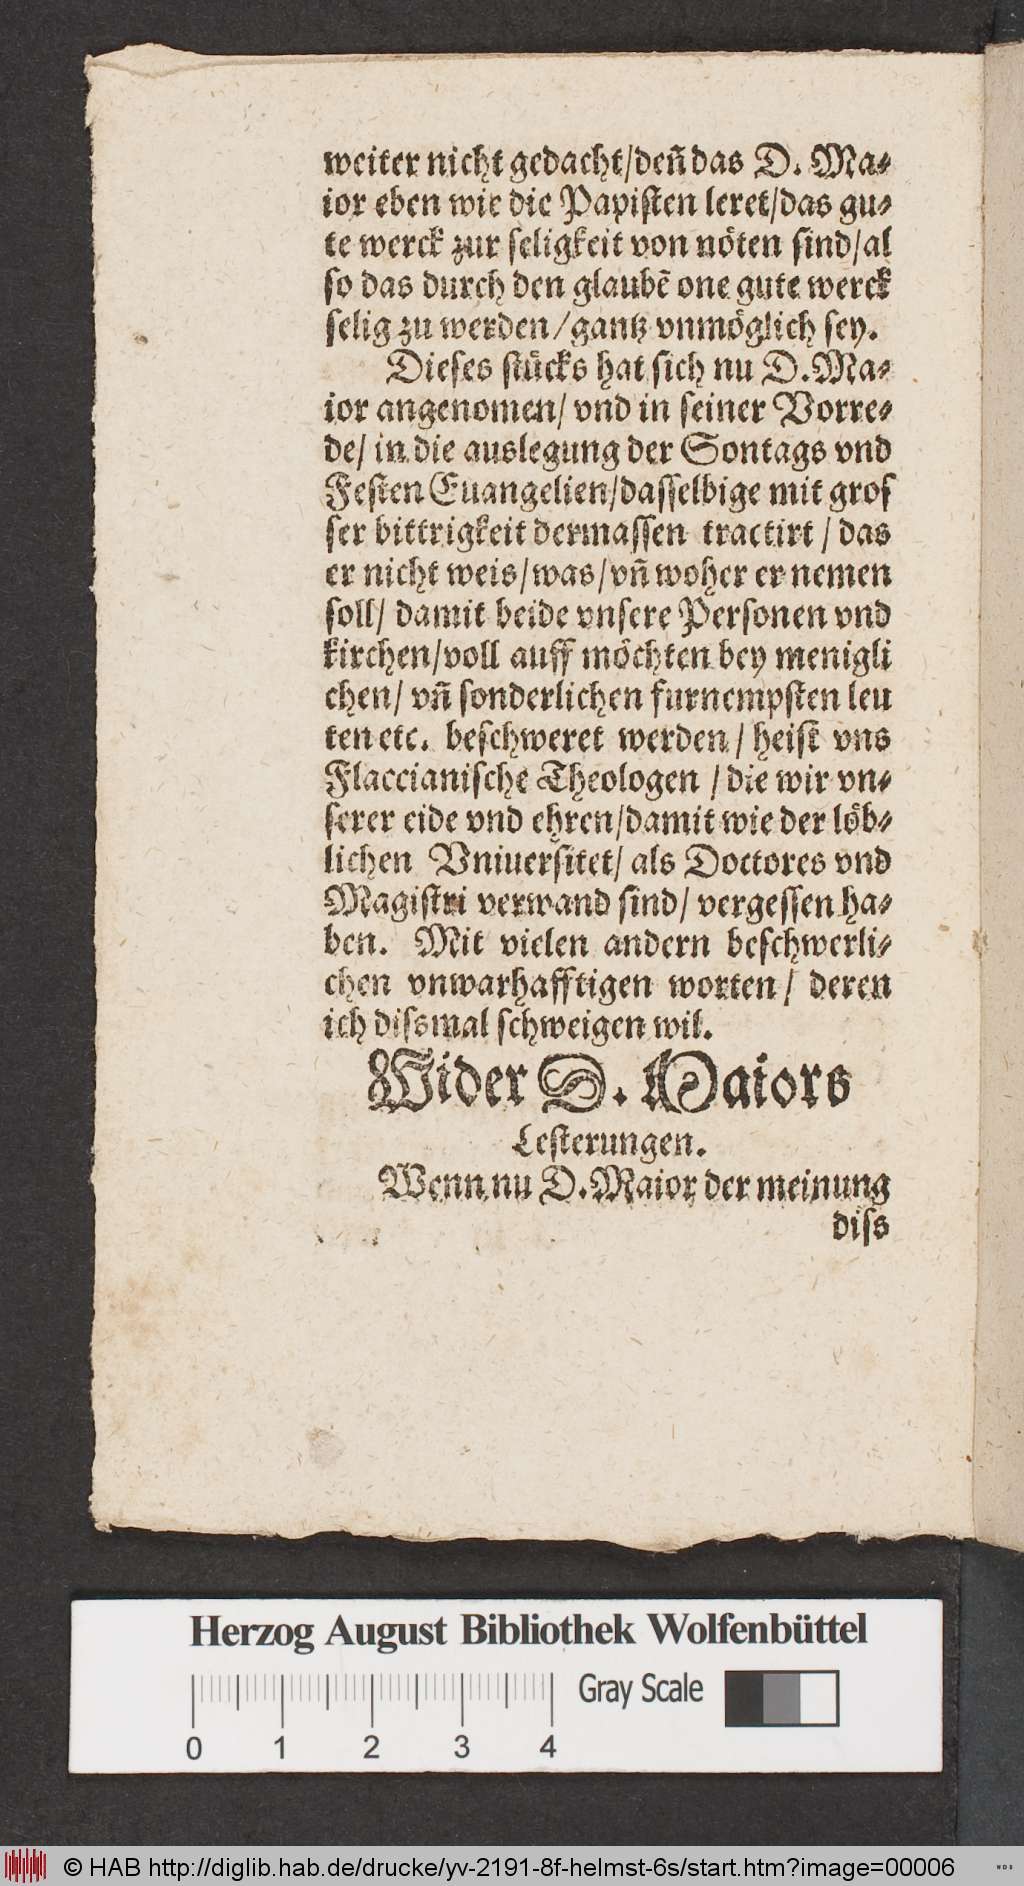 weiter nicht gedacht/deñ das D. Ma⸗
ior eben wie die Papiſten leret/das gu⸗
te werck zur ſeligkeit von nöten ſind/al
ſo das durch den glaubē one gute werck
ſelig zu werden/gantz vnmöglich ſey.
Dieſes ſtücks hat ſich nu D. Ma⸗
ior angenomen/ vnd in ſeiner Vorre⸗
de/ in die auslegung der Sontags vnd
Feſten Euangelien/daſſelbige mit groſ
ſer bittrigkeit dermaſſen tractirt / das
er nicht weis/was/vñ woher er nemen
ſoll/ damit beide vnſere Perſonen vnd
kirchen/voll auff möchten bey menigli
chen/ vñ ſonderlichen furnempſten leu
ten etc. beſchweret werden / heiſt vns
Flaccianiſche Theologen / die wir vn⸗
ſerer eide vnd ehren/damit wie der löb⸗
lichen Vniuerſitet/ als Doctores vnd
Magiſtri verwand ſind/ vergeſſen ha⸗
ben. Mit vielen andern beſchwerli⸗
chen vnwarhafftigen worten / deren
ich diſsmal ſchweigen wil.
Wider D. Maiors
Leſterungen.
Wenn nu D. Maior der meinung
diſs
Herzog August Bibliothek Wolfenbüttel
Gray Scale
0 1 2 3 4
© HAB http://diglib.hab.de/drucke/yv-2191-8f-helmst-6s/start.htm?image=00006
WDB